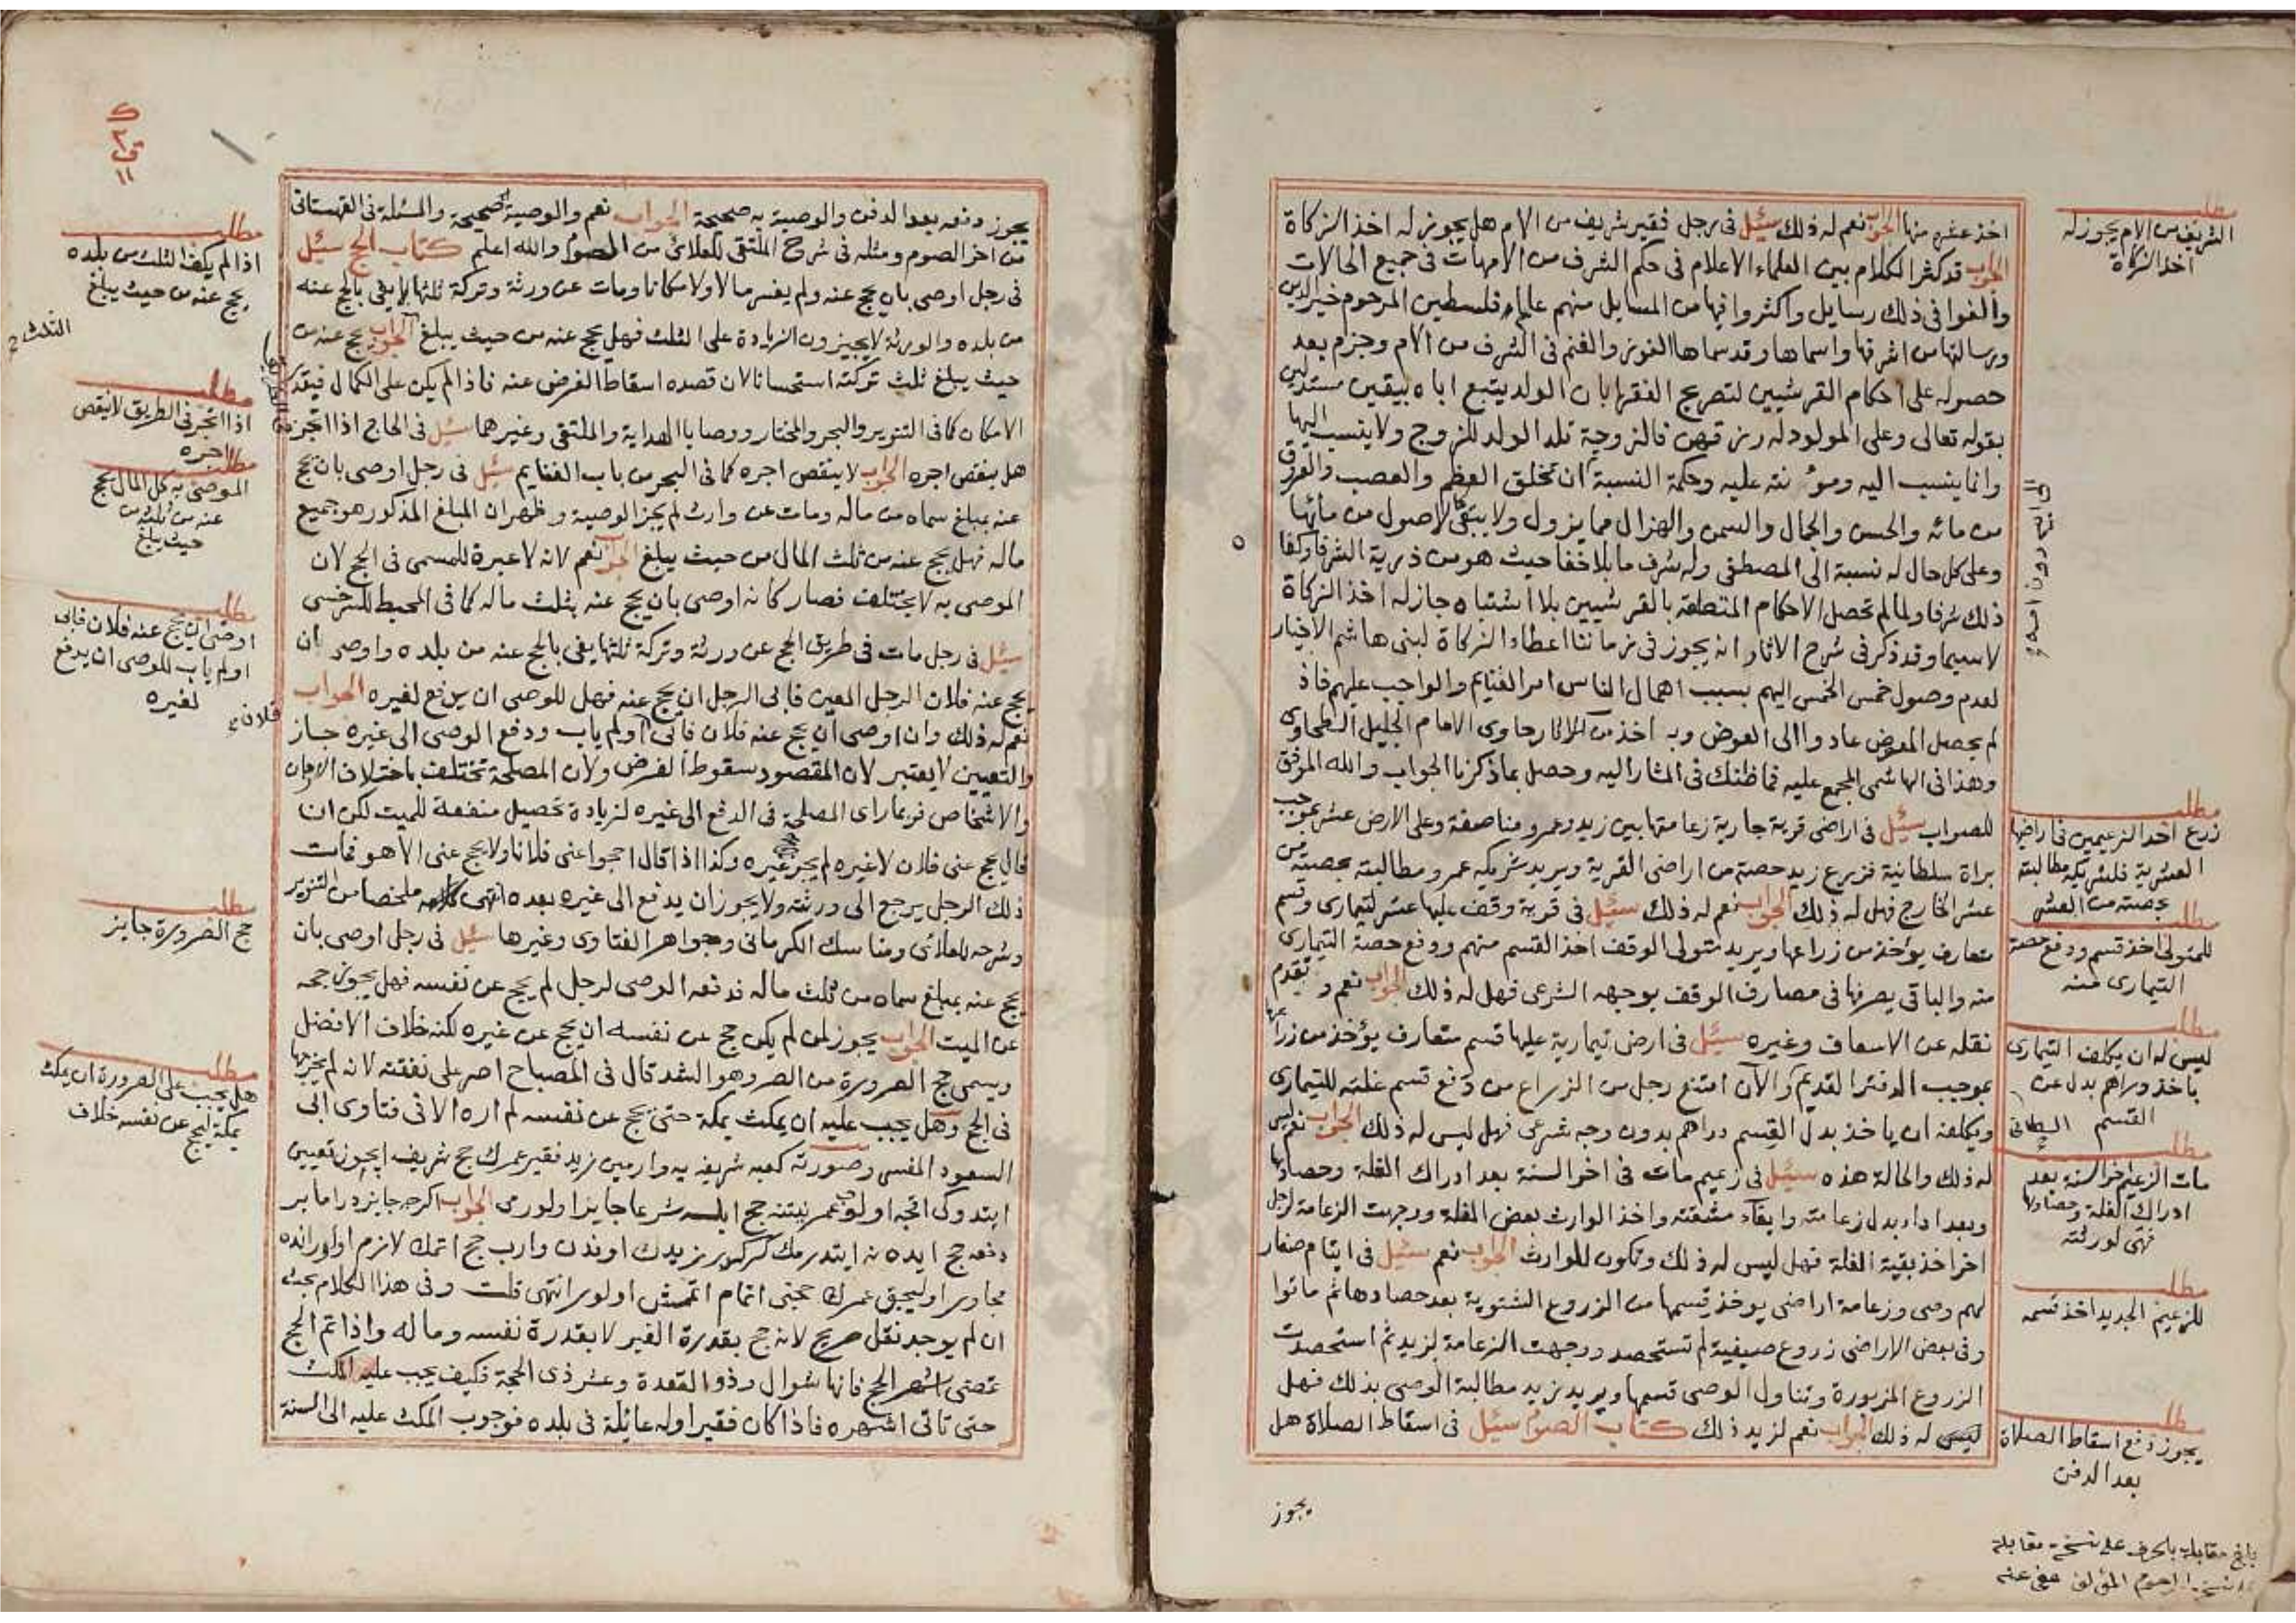 اخذ عشره منها الجواب نعم له ذلك سئل في رجل فقير شريف من الام هل يجوز له اخذ الزكاة
الجواب قد كثر الكلام بين العلماء الاعلام في حكم الشرف من الامهات في جميع الحالات
والفوا في ذلك رسايل واكثروا فيها من المسايل منهم علامة فلسطين المرحوم خير الدين
ورسالته من اشرفها واسماها وقد سماها الفوز والغنم في الشرف من الام وجزم بعد
حصوله على احكام القرشيين لتصريح الفقها بان الولد يتبع اباه بيقين مستدلين
بقوله تعالى وعلى المولود له رزقهن فالزوجة تلد الولد للزوج ولا ينسب اليها
وانما ينسب اليه ومؤنته عليه وحكمة النسبة ان تخلق العظم والعصب والعروق
من مائه والحسن والجمال والسمن والهزال مما يزول ولا يبقى كالاصول من مائها
وعلى كل حال له نسبة الى المصطفى وله شرف ما بلا خفا حيث هو من ذرية الشرفا وكفا
ذلك شرفا ولما لم تحصل الاحكام المتعلقة بالقرشيين بلا اشتباه جاز له اخذ الزكاة
لاسيما وقد ذكر في شرح الاثار انه يجوز في زماننا اعطاء الزكاة لبني هاشم الاخيار
لعدم وصول خمس الخمس اليهم بسبب اهمال الناس امر الغنايم والواجب عليهم فاذ
لم يحصل المعوض عادوا الى العوض وبه اخذ من الاثار حاوي الامام الجليل الطحاوي
وهذا في الهاشمي المجمع عليه فما ظنك في المشار اليه وحصل بما ذكرنا الجواب والله الموفق
للصواب سئل في اراضي قرية جارية زعامتها بين زيد وعمرو مناصفة وعلى الارض عشر بموجب
براة سلطانية فزرع زيد حصة من اراضي القرية ويريد شريكه عمرو مطالبته بحصته من
عشر الخارج فهل له ذلك الجواب نعم له ذلك سئل في قرية وقف عليها عشر لتيماري وقسم
متعارف يؤخذ من زراعها ويريد متولي الوقف اخذ القسم منهم ودفع حصة التيماري
منه والباقي يصرفها في مصارف الوقف بوجهه الشرعي فهل له ذلك الجواب نعم وتقدم
نقله عن الاسعاف وغيره سئل في ارض تيمارية عليها قسم متعارف يؤخذ من زراعها
بموجب الدفتر القديم والآن امتنع رجل من الزراع من دفع قسم غلته للتيماري
ويكلفه ان ياخذ بدل القسم دراهم بدون وجه شرعي فهل ليس له ذلك الجواب نعم ليس
له ذلك والحالة هذه سئل في زعيم مات في اخر السنة بعد ادراك الغلة وحصادها
وبعد اداء بدل زعامته وايفاء مشقته واخذ الوارث بعض الغلة ووجهت الزعامة لرجل
اخر اخذ بقية الغلة فهل ليس له ذلك وتكون للوارث الجواب نعم سئل في ايتام صغار
لهم وصي وزعامة اراضي يوخذ قسمها من الزروع الشتوية بعد حصادها ثم ماتوا
وفي بعض الاراضي زروع صيفية لم تستحصد ووجهت الزعامة لزيد ثم استحصدت
الزروع المزبورة وتناول الوصي قسمها ويريد زيد مطالبة الوصي بذلك فهل
ليس له ذلك الجواب نعم لزيد ذلك كتاب الصوم سئل في اسقاط الصلاة هل
يجوز
مطلب
الشريف من الام يجوز له
اخذ الزكاة
مطلب
زرع احد الزعيمين في اراضيها
العشرية فلشريكه مطالبته
بحصته من العشر
مطلب
للمتولي اخذ قسم ودفع حصة
التيماري منه
مطلب
ليس له ان يكلف التيماري
باخذ دراهم بدل عن
القسم
مطلب
مات الزعيم اخر السنة بعد
ادراك الغلة وحصادها
فهي لورثته
مطلب
للزعيم الجديد اخذ قسمه
مطلب
يجوز دفع اسقاط الصلاة
بعد الدفن
بلغ مقابلة بالحرف على نسخة مقابلة
على نسخة المرحوم المؤلف عفي عنه
يجوز دفعه بعد الدفن والوصية به صحيحة الجواب نعم والوصية صحيحة والمسئلة في القهستاني
من اخر الصوم ومثله في شرح الملتقى للعلائي من الصوم والله اعلم كتاب الحج سئل
في رجل اوصى بان يحج عنه ولم يفسر مالا ولا مكانا ومات عن ورثة وتركة ثلثها لا يفي بالحج عنه
من بلده والورثة لا يجيزون الزيادة على الثلث فهل يحج عنه من حيث يبلغ الجواب يحج عنه من
حيث يبلغ ثلث تركته استحسانا لان قصده اسقاط الفرض عنه فاذا لم يكن على الكمال فبقدر
الامكان كما في التنوير والبحر والمختار ووصايا الهداية والملتقى وغيرهما سئل في الحاج اذا اتجر
هل ينقص اجره الجواب لا ينقص اجره كما في البحر من باب الغنايم سئل في رجل اوصى بان يحج
عنه بمبلغ سماه من ماله ومات عن وارث لم يجز الوصية وظهر ان المبلغ المذكور هو جميع
ماله فهل يحج عنه من ثلث المال من حيث يبلغ الجواب نعم لانه لا عبرة للمسمى في الحج لان
الموصى به لا يختلف فصار كانه اوصى بان يحج عنه بثلث ماله كما في المحيط للسرخسي
سئل في رجل مات في طريق الحج عن ورثة وتركة ثلثها يفي بالحج عنه من بلده واوصى ان
يحج عنه فلان الرجل المعين فابى الرجل ان يحج عنه فهل للوصي ان يدفع لغيره الجواب
نعم له ذلك وان اوصى ان يحج عنه فلان فابى او لم ياب ودفع الوصي الى غيره جاز
والتعيين لا يعتبر لان المقصود سقوط الفرض ولان المصلحة تختلف باختلاف الازمان
والاشخاص فربما راى المصلحة في الدفع الى غيره لزيادة تحصيل منفعة للميت لكن ان
قال يحج عني فلان لا غيره لم يجز غيره وكذا اذا قال احجوا عني فلانا ولا يحج عني الا هو فمات
ذلك الرجل يرجع الى ورثته ولا يجوز ان يدفع الى غيره بعده انتهى ملخصا من التنوير
وشرحه للعلائي ومناسك الكرماني وجواهر الفتاوى وغيرها سئل في رجل اوصى بان
يحج عنه بمبلغ سماه من ثلث ماله فدفعه الوصي لرجل لم يحج عن نفسه فهل يجوز حجه
عن الميت الجواب يجوز لمن لم يكن حج عن نفسه ان يحج عن غيره لكنه خلاف الافضل
ويسمى حج الصرورة من الصر وهو الشد قال في المصباح اصر على نفقته لانه لم يخرجها
في الحج وهل يجب عليه ان يمكث بمكة حتى يحج عن نفسه لم اره الا في فتاوى ابي
السعود المفسر وصورته كعبه شريفه يه وارمين زيد فقير عمرك حج شريف ايچون تعيين
ايتدوكى اقچه اولوب عمر نيتنه حج ايلسه شرعا جايز اولورمى الجواب اكرچه جايزدر اما بر
دفعه حج ايده نه ايتدرمك كركدر زيدك اوندن وارب حج اتمك لازم اولور انده
مجاور اوليجق عمرك حجنى اتمام اتمش اولور انتهى قلت وفي هذا الكلام بحث
ان لم يوجد نقل صريح لانه حج بقدرة الغير لا بقدرة نفسه وماله واذا تم الحج
تمضي اشهر الحج فانها شوال وذو القعدة وعشر ذي الحجة فكيف يجب عليه المكث
حتى تاتي اشهره فاذا كان فقيرا وله عائلة في بلده فوجوب المكث عليه الى السنة
مطلب
اذا لم يكف الثلث من بلده
يحج عنه من حيث يبلغ
الثلث
مطلب
اذا اتجر في الطريق لا ينقص
اجره
مطلب
الموصى به كل المال يحج
عنه من ثلثه من
حيث يبلغ
مطلب
اوصى ان يحج عنه فلان فابى
او لم ياب للوصي ان يدفع
لغيره
فلان
مطلب
حج الصرورة جايز
مطلب
هل يجب على الصرورة ان يمكث
بمكة ليحج عن نفسه خلاف